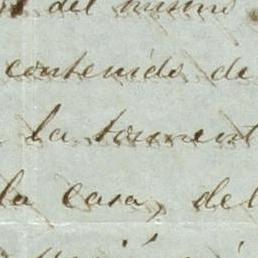 del mismo
contenido de
la torment
la casa, del